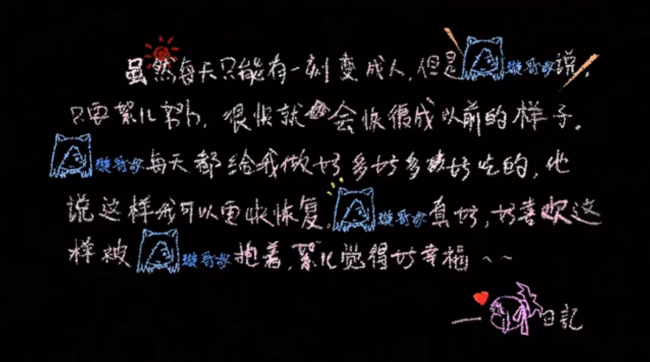 虽然每天只能有一刻变成人，但是璇哥哥说，
只要絮儿努力，很快就会恢复成以前的样子。
璇哥哥每天都给我做好多好多好吃的，他
说这样我可以更快恢复，璇哥哥真好，好喜欢这
样被璇哥哥抱着，絮儿觉得好幸福~~
一日记